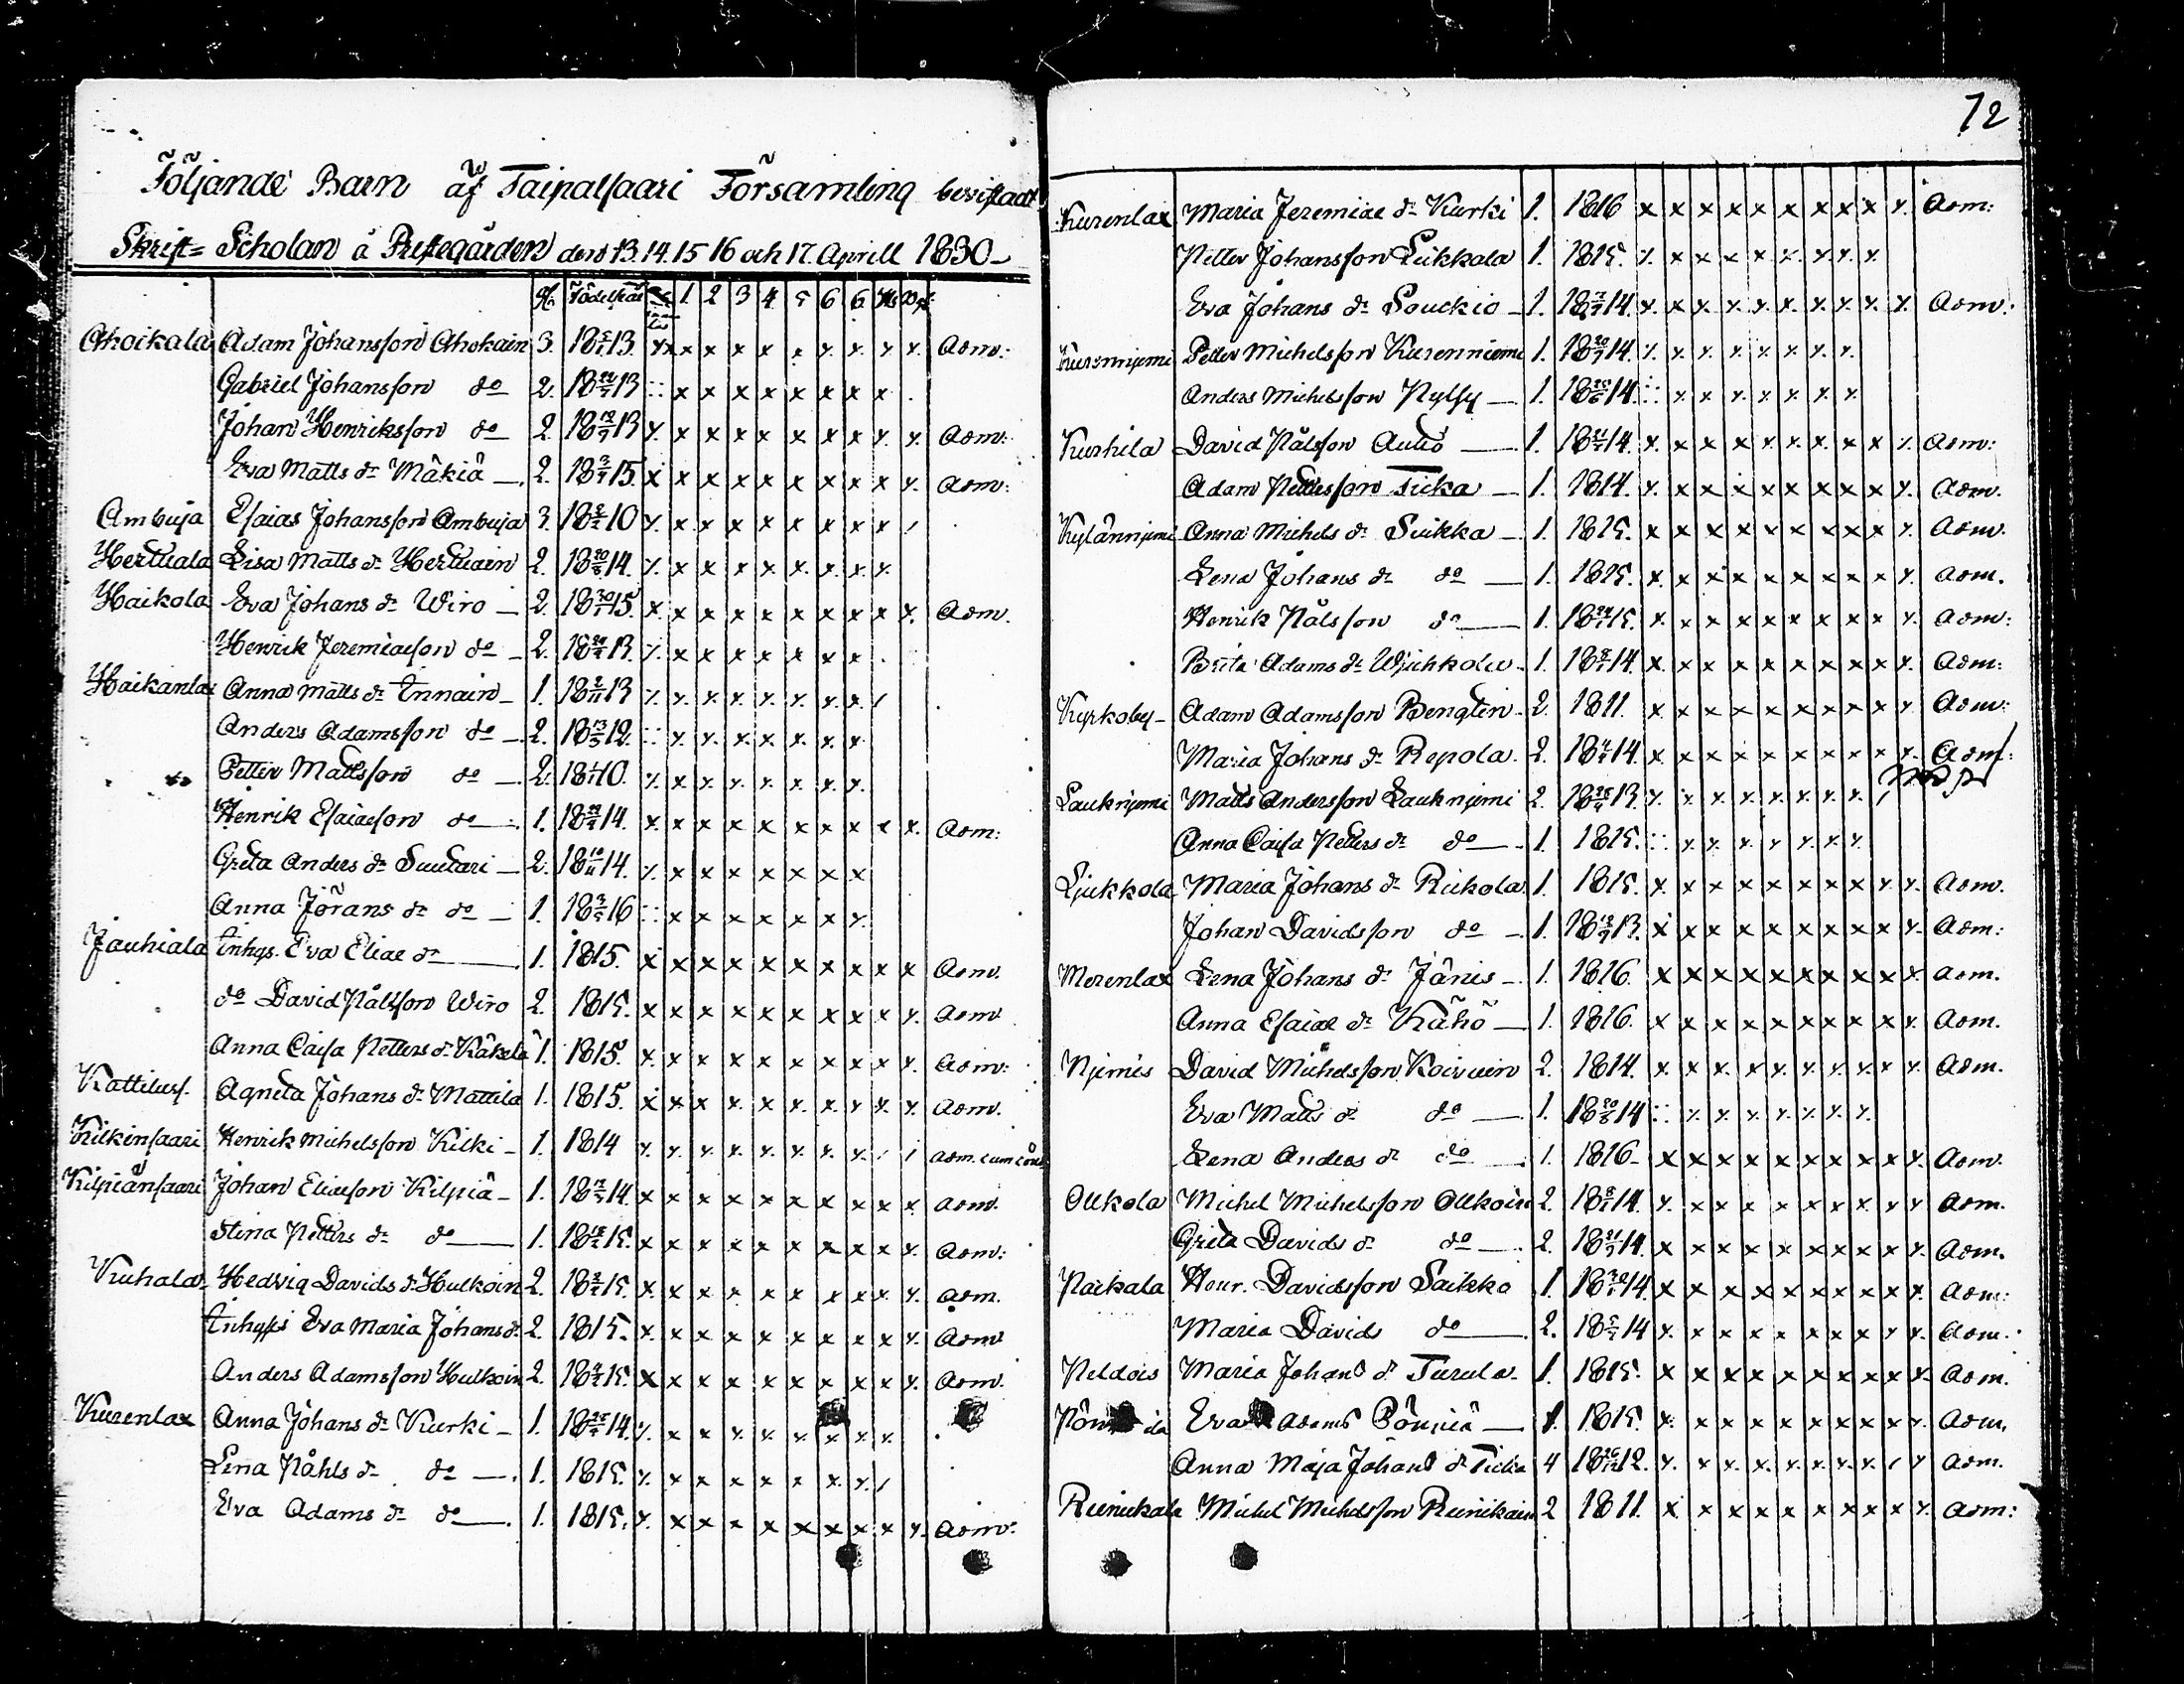 72
Följande Barn af Taipalsaari Församling bevistadt
Skrift-Scholan å Prestegården den 13. 14. 15 16 och 17. Aprill 1830
1 2 3 4 5 6 6
Ahoikala Adam Johansson Ahokain 3. 18 13. x x x x x x x x x x Adm:
Gabriel Johansson do 2. 18 13 x x x x x x x
Johan Henriksson do 2. 18 13 x x x x x x x x x x Adm:
Eva Matts dr Mäkiä 2. 18 15. x x x x x x x x x x Adm:
Ambuja Esaias Johansson Ambuja 3. 18 10 x x x x x x x x /
Hertuala Lisa Matts dr Hertuain 2. 18 14. x x x x x x x x
Haikola Eva Johans dr Wiro 2. 18 15. x x x x x x x x x x Adm.
Henrik Jeremiaeson do 2. 18 13. x x x x x x x x
Haikanlax Anna Matts dr Innain 1. 18 13 x x x x x x x x /
Anders Adamsson do 2. 18 12. x x x x x x x
Petter Mattsson do 2. 18 10. x x x x x x x x
Henrik Esaiaeson do 1. 18 14. x x x x x x x x x x Adm:
Greta Anders dr Suutari 2. 18 14. x x x x x x x x
Anna Jörans dr do 1. 18 16 x x x x x x x
Jauhiala Inhys. Eva Eliae dr 1. 1815. x x x x x x x x x x Adm.
do David Pålsson Wiro 2. 1815. x x x x x x x x x x Adm
Anna Caisa Petters dr Käkelä 1. 1815. x x x x x x x x x x Adm:
Kattilus. Agneta Johans dr Mattila 1. 1815. x x x x x x x x x x Adm.
Kilkinsaari Henrik Michelsson Kilki 1. 1814 x x x x x x x x / / Adm. cum
Kilpiänsaari Johan Eliaeson Kilpiä 1. 18 14. x x x x x x x x x x Adm.
Stina Petters dr do 1. 18 15. x x x x x x x x x x Adm:
Kuhala Hedvig Davids dr Hulkoin 2. 18 15. x x x x x x x x x x Adm.
Inhyses Eva Maria Johans dr 2. 1815. x x x x x x x x x x Adm
Anders Adamsson Hulkoin 2. 18 15. x x x x x x x x x x Adm.
Kurenlax Anna Johans dr Kurki 1. 18 14. x x x x x x x x
Lena Påhls dr do 1. 1815. x x x x x x x x /
Eva Adams dr do 1. 1815. x x x x x x x x x x Adm:
Kurenlax Maria Jeremiae dr Kurki 1. 1816 x x x x x x x x x x Adm:
Petter Johansson Liikkala 1. 1815. x x x x x x x x x
Eva Johans dr Souckio 1. 18 14. x x x x x x x x x x Adm:
Kurenniemi Petter Michelsson Kurenniemi 1. 18 14. x x x x x x x x
Anders Michelsson Pylsy 1. 18 14. x x x x x x x
Kurhila David Pålsson Autio 1. 18 14. x x x x x x x x x x Adm:
Adam Pettersson Ticka 1. 1814. x x x x x x x x x x Adm.
Kylänniemi Anna Michels dr Suikka 1. 1815. x x x x x x x x x x Adm.
Lena Johans dr do 1. 1815. x x x x x x x x x x Adm.
Henrik Pålsson do 1. 18 15. x x x x x x x x x x Adm:
Brita Adams dr 1. 18 14. x x x x x x x x x x Adm:
Kyrkoby Adam Adamsson Bengtin 2. 1811. x x x x x x x x x x Adm:
Maria Johans dr Repola 2. 18 14. x x x x x x x x x x Adm:
Lauknjemi Matts Andersson Lauknjemi 2. 18 13. x x x x x x x x /
Anna Caisa Petters dr do 1. 1815. x x x x x x x
Ljukkola Maria Johans dr Rickola 1. 1815. x x x x x x x x x x Adm.
Johan Davidsson do 1. 18 13. x x x x x x x x x x Adm:
Merenlax Lena Johans dr Jänis 1. 1816. x x x x x x x x x x Adm.
Anna Esaiae dr Kähö 1. 1816. x x x x x x x x x x Adm.
Njemis David Michelsson Koivuin 2. 1814. x x x x x x x x x x Adm.
Eva Matts dr do 1. 18 14 x x x x x x x
Lena Anders dr do 1. 1816 x x x x x x x x x x Adm.
Olkola Michel Michelsson Olkoin 2. 18 14. x x x x x x x x x x Adm.
Greta Davids dr do 2. 18 14. x x x x x x x x x x Adm.
Paikala Henr. Davidsson Saikko 1. 18 14. x x x x x x x x x x Adm:
Maria Davids do 2. 18 14 x x x x x x x x x x Adm.
Peldois Maria Johans dr Turula 1. 1815. x x x x x x x x x x Adm.
Eva Adams Pönniä 1. 1815. x x x x x x x x x x Adm.
Anna Maja Johans dr Ticka 4 18 12. x x x x x x x x / x Adm.
Reinickala Michel Michelsson Reinikain 2 1811. x x x x x x x x x x Adm: